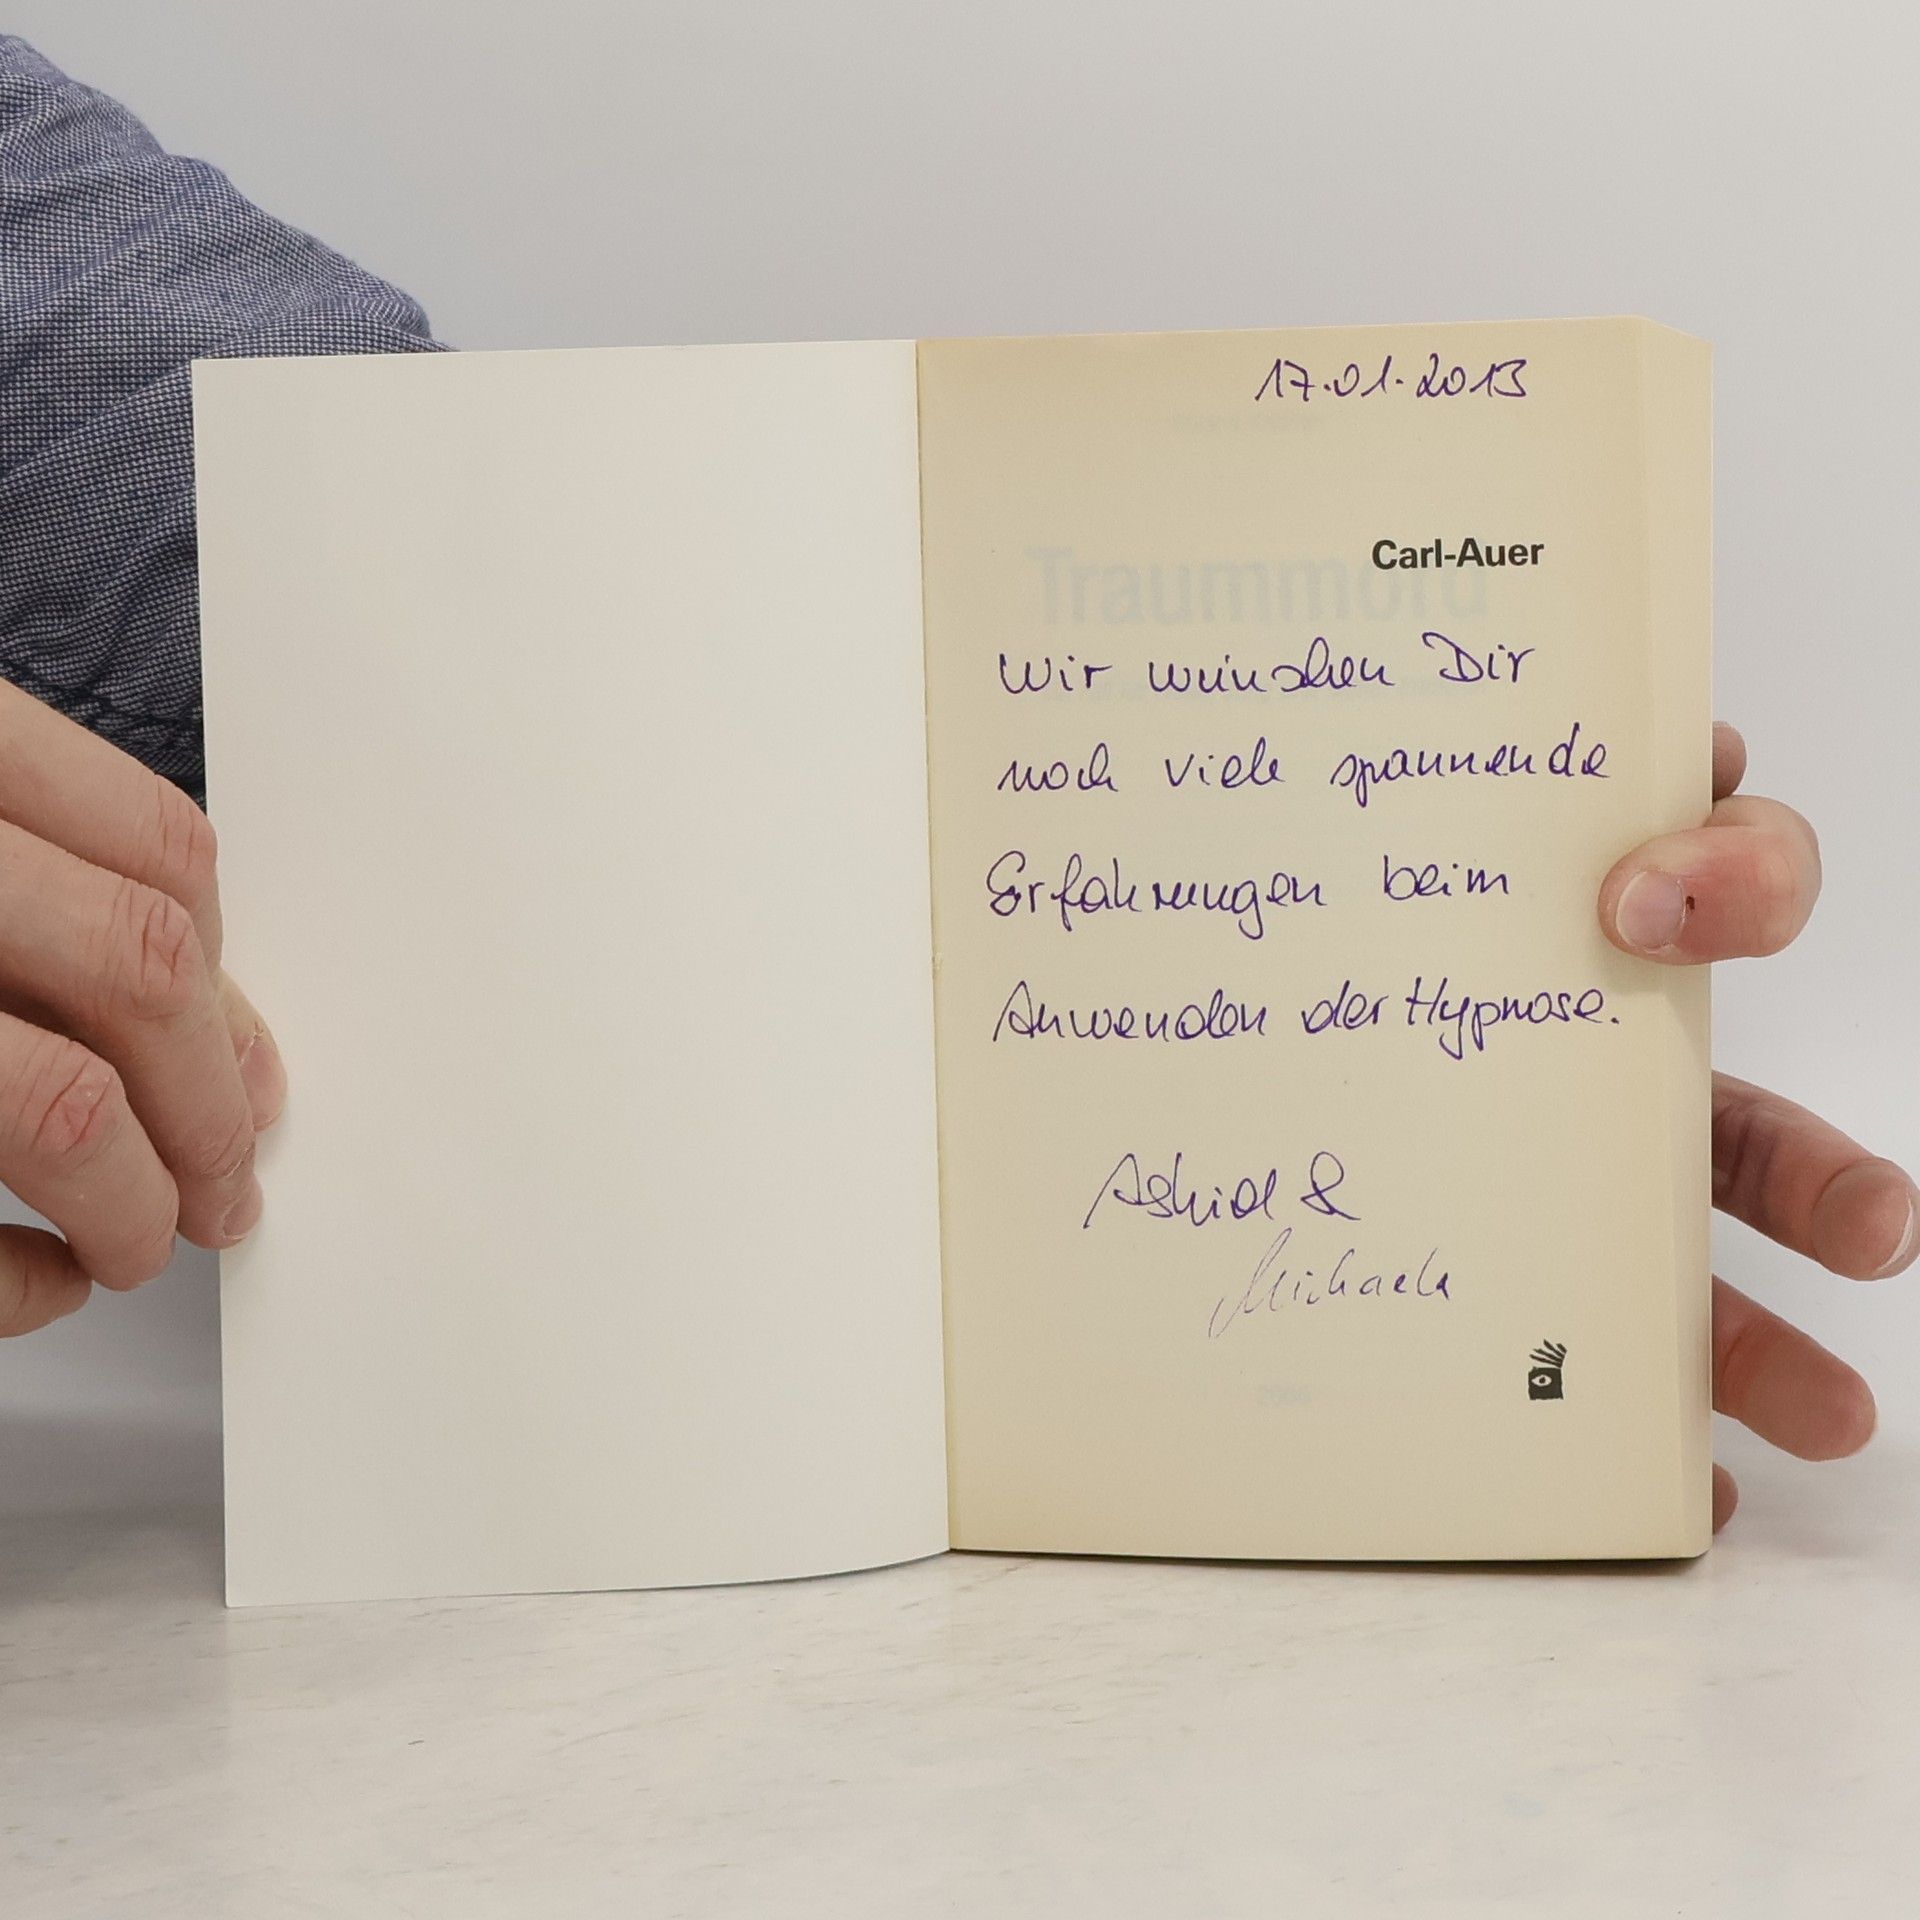 17.01.2013
Carl-Auer
Traummord
Wir wünschen Dir
noch viele spannende
Erfahrungen beim
Anwenden der Hypnose.
Astrid &
Michaela